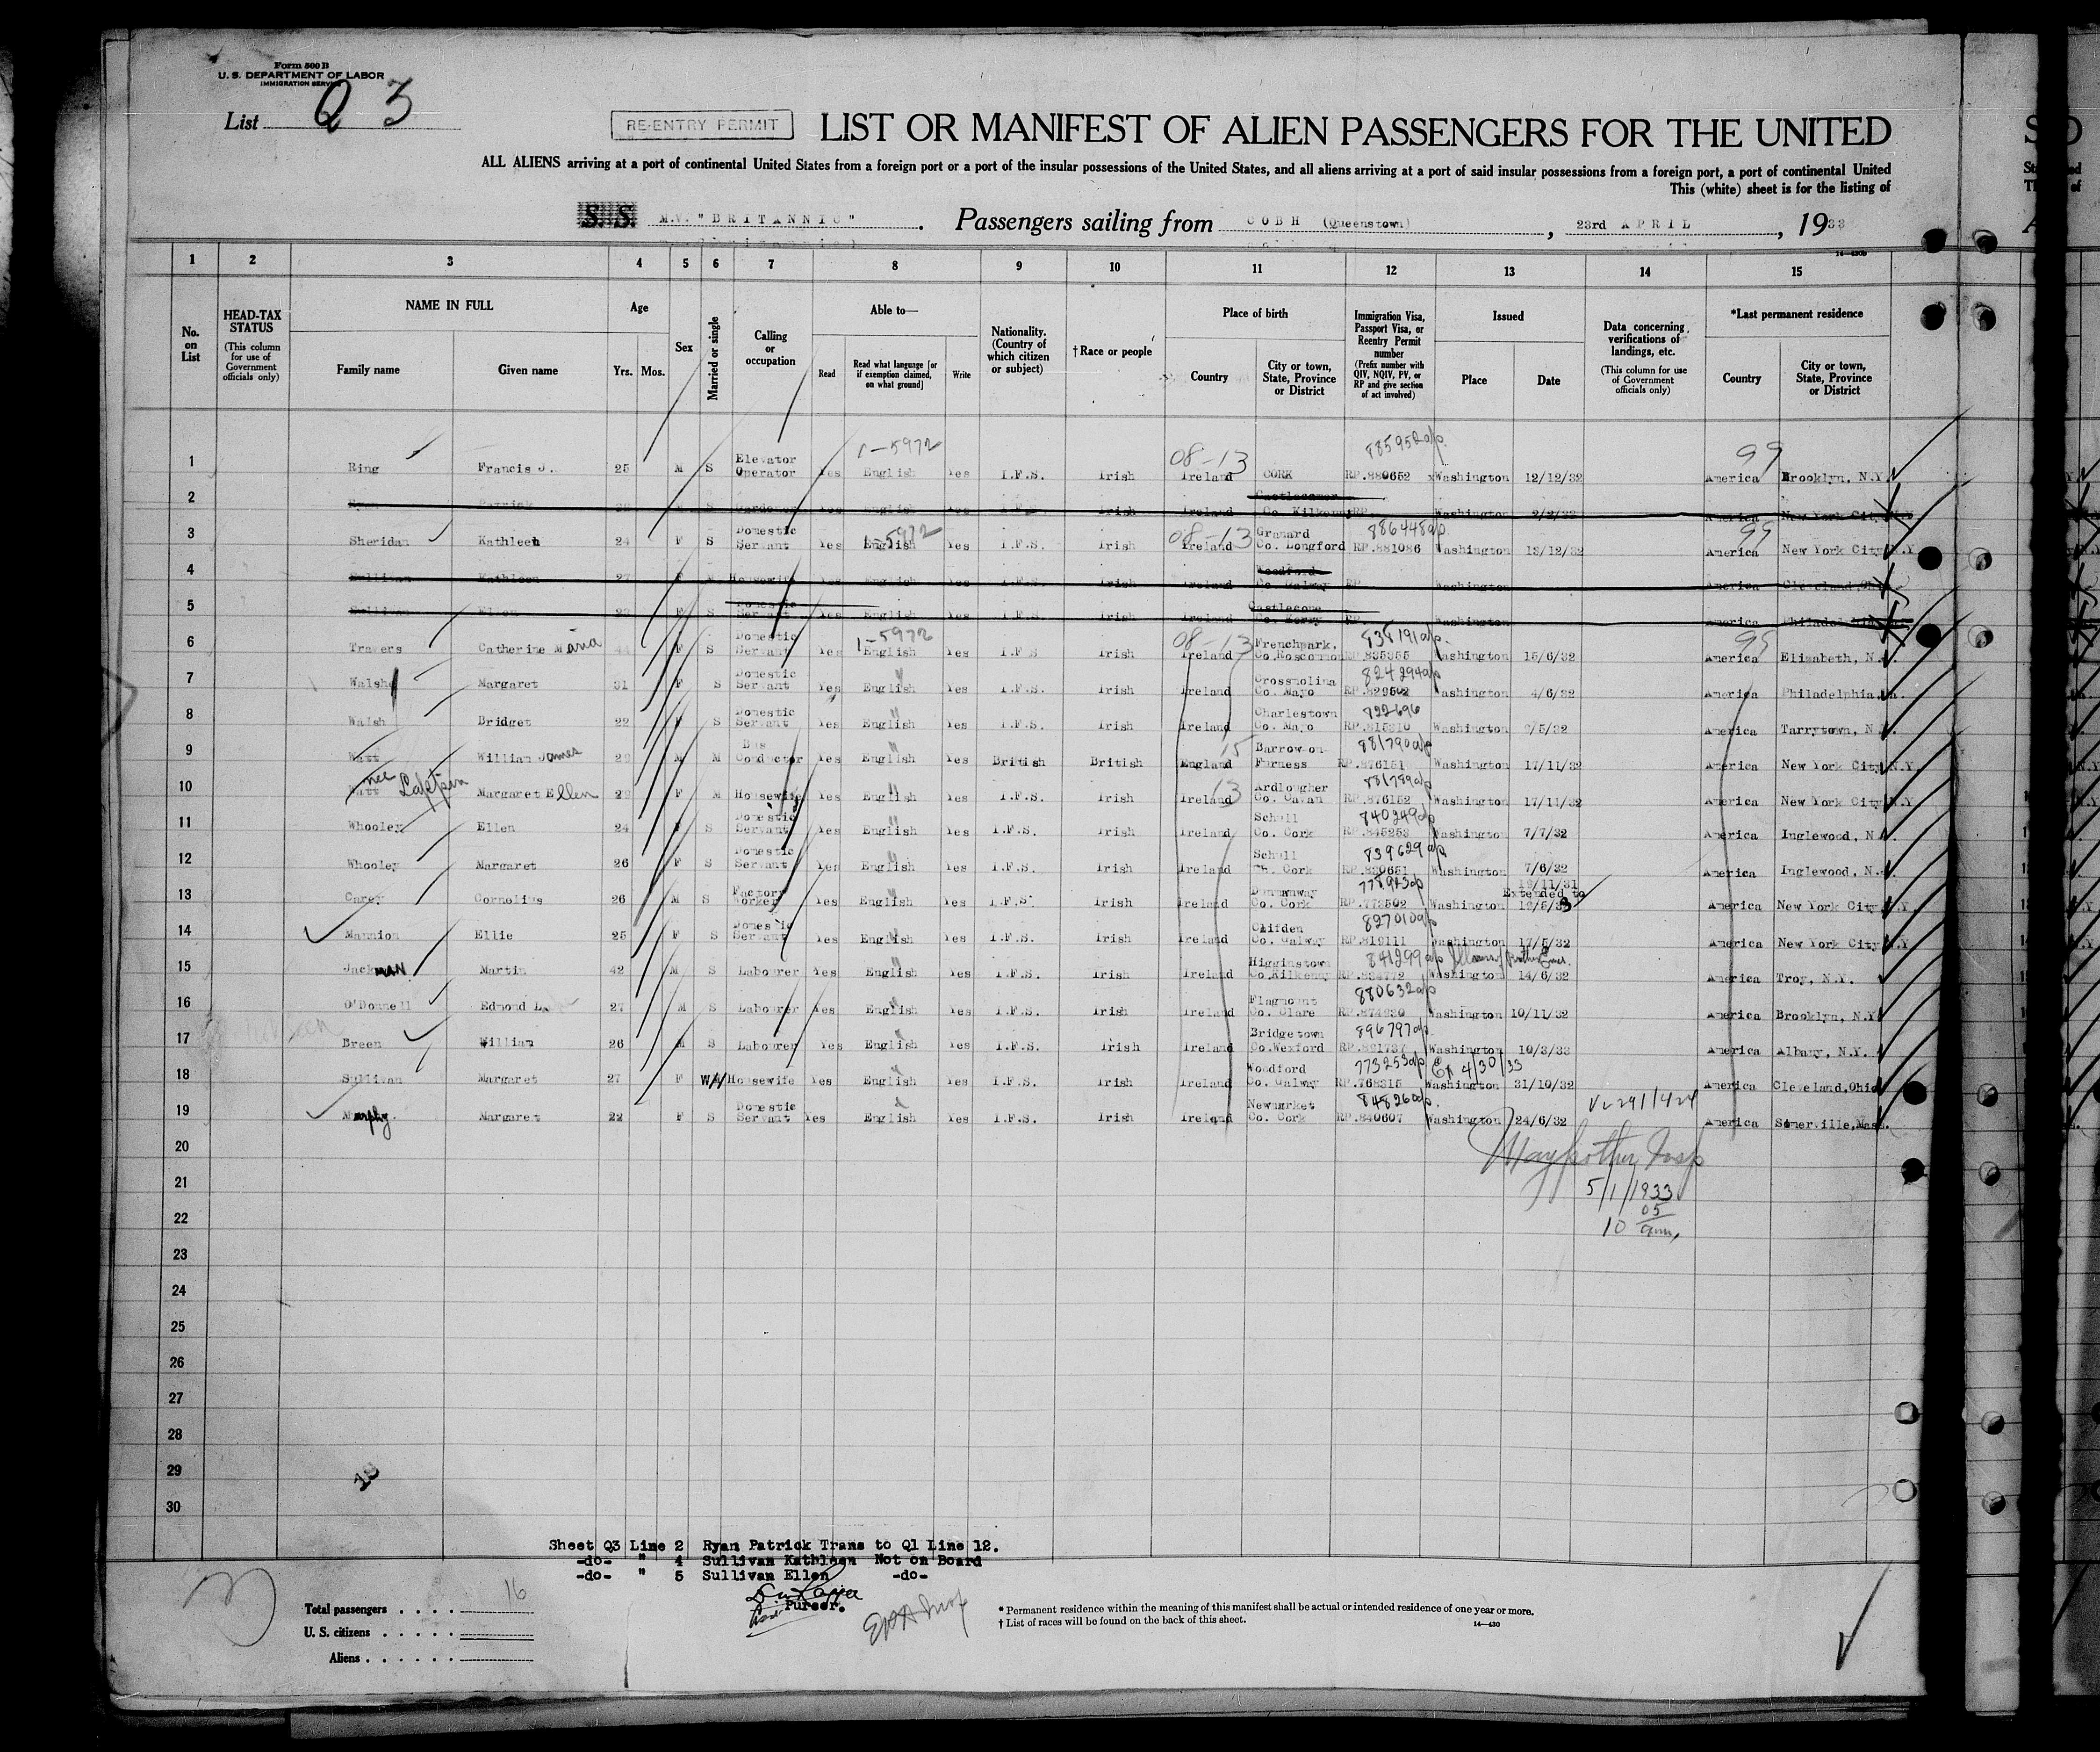 Form 500 B
U. S. DEPARTMENT OF LABOR
IMMIGRATION SERVICE
List Q 3
RE-ENTRY PERMIT
LIST OR MANIFEST OF ALIEN PASSENGERS FOR THE UNITED
ALL ALIENS arriving at a port of continental United States from a foreign port or a port of the insular possessions of the United States, and all aliens arriving at a port of said insular possessions from a foreign port, a port of continental United
This (white) sheet is for the listing of
S. S. M.V. "BRITANNIC". Passengers sailing from COBH (Queenstown), 23rd APRIL, 1933
14—430b
1 2 3 4 5 6 7 8 9 10 11 12 13 14 15
No. on List
HEAD-TAX STATUS (This column for use of Government officials only)
NAME IN FULL
Family name Given name
Age
Yrs. Mos.
Sex
Married or single
Calling or occupation
Able to—
Read Read what language [or if exemption claimed, on what ground] Write
Nationality. (Country of which citizen or subject)
†Race or people
Place of birth
Country City or town, State, Province or District
Immigration Visa, Passport Visa, or Reentry Permit number (Prefix number with QIV, NQIV, PV, or RP and give section of act involved)
Issued
Place Date
Data concerning verifications of landings, etc. (This column for use of Government officials only)
*Last permanent residence
Country City or town, State, Province or District
1-5972 08-13 885952 a/p. 99
1 Ring Francis J. 25 M S Elevator Operator Yes English Yes I.F.S. Irish Ireland CORK RP.880652 xWashington 12/12/32 America Brooklyn, N.Y.
2 Patrick S Gardener Yes English Yes I.F.S. Irish Ireland Castlecomer Co. Kilkenny RP. Washington 2/2/33 America New York City N.Y.
1-5972 08-13 886448 a/p. 99
3 Sheridan Kathleen 24 F S Domestic Servant Yes English Yes I.F.S. Irish Ireland Granard Co. Longford RP.881086 Washington 13/12/32 America New York City N.Y.
4 Sullivan Kathleen 27 F M Housewife Yes English Yes I.F.S. Irish Ireland Woodford Co. Galway RP Washington America Cleveland, Ohio
5 Sullivan Ellen 23 F S Domestic Servant Yes English Yes I.F.S. Irish Ireland Co. Kerry RP. Washington America Philadel
1-5972 08-13 838191 a/p. 99
6 Travers Catherine Maria 44 F S Domestic Servant Yes English Yes I.F.S Irish Ireland Frenchpark, Co.Roscommon RP.835355 Washington 15/6/32 America Elizabeth, N.
824294 a/p
7 Walshe Margaret 31 F S Domestic Servant Yes English " Yes I.F.S. Irish Ireland Crossmolina Co. Mayo RP.829502 Washington 4/6/32 America Philadelphia,
822696
8 Walsh Bridget 22 F S Domestic Servant Yes English " Yes I.F.S. Irish Ireland Charlestown Co. Mayo RP.815210 Washington /5/32 America Tarrytown, N.
15 881790 a/p
9 Watt William James 29 M M Bus Conductor Yes English " Yes British British England Barrow-on-Furness RP.876151 Washington 17/11/32 America New York City N.Y.
nee 13 881789 a/p
10 Watt Margaret Ellen 29 F M Housewife Yes English " Yes I.F.S. Irish Ireland Ardlougher Co. Cavan RP.876152 Washington 17/11/32 America New York City N.Y
840249 a/p
11 Whooley Ellen 24 F S Domestic Servant Yes English " Yes I.F.S. Irish Ireland Schull Co. Cork RP.845253 Washington 7/7/32 America Inglewood, N.
839629 a/p
12 Whooley Margaret 26 F S Domestic Servant Yes English " Yes I.F.S. Irish Ireland Schull Co. Cork RP.830651 Washington 7/6/32 America Inglewood, N.
13 Carey Cornelius 26 M S Factory Worker Yes English " Yes I.F.S. Irish Ireland Dunmanway Co. Cork RP.773502 Washington 19/11/31 Extended to 19/5/33 America New York City N.Y.
827010 a/p
14 Mannion Ellie 25 F S Domestic Servant Yes English " Yes I.F.S. Irish Ireland Clifden Co. Galway RP.819111 Washington 17/5/32 America New York City N.Y
841299 a/p
15 Jackman Martin 42 M S Labourer Yes English " Yes I.F.S. Irish Ireland Higginstown Co.Kilkenny RP.834772 Washington 14/6/32 America Troy, N.Y.
880632 a/p
16 O'Donnell Edmond L. 27 M S Labourer Yes English " Yes I.F.S. Irish Ireland Flagmount Co. Clare RP.874230 Washington 10/11/32 America Brooklyn, N.Y.
896797 a/p.
17 Breen William 26 M S Labourer Yes English " Yes I.F.S. Irish Ireland Bridgetown Co.Wexford RP.891737 Washington 10/3/33 America Albany, N.Y.
773253 a/p Ex 4/30/33
18 Sullivan Margaret 27 F Housewife Yes English " Yes I.F.S. Irish Ireland Woodford Co. Galway RP.768315 Washington 31/10/32 America Cleveland,Ohio
848260 a/p.
19 Murphy Margaret 22 F S Domestic Servant Yes English Yes I.F.S. Irish Ireland Newmarket Co. Cork RP.840607 Washington 24/6/32 America Somerville,Mass.
20
21 5/1/1933
22 10 05 am,
23
24
25
26
27
28
29
30
Sheet Q3 Line 2 Ryan Patrick Trans to Q1 Line 12.
-do- " 4 Sullivan Kathleen Not on Board
-do- " 5 Sullivan Ellen -do-
Purser.
Total passengers . . . . 16
U. S. citizens . . . . .
Aliens . . . . . .
* Permanent residence within the meaning of this manifest shall be actual or intended residence of one year or more.
† List of races will be found on the back of this sheet.
14—430